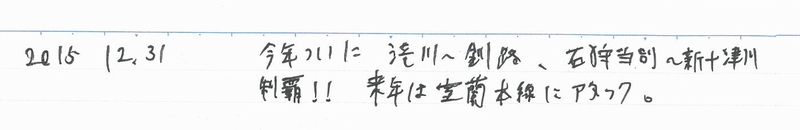 2015 12.31 今年ついに 滝川~釧路、石狩当別~新十津川
制覇!! 来年は室蘭本線にアタック。